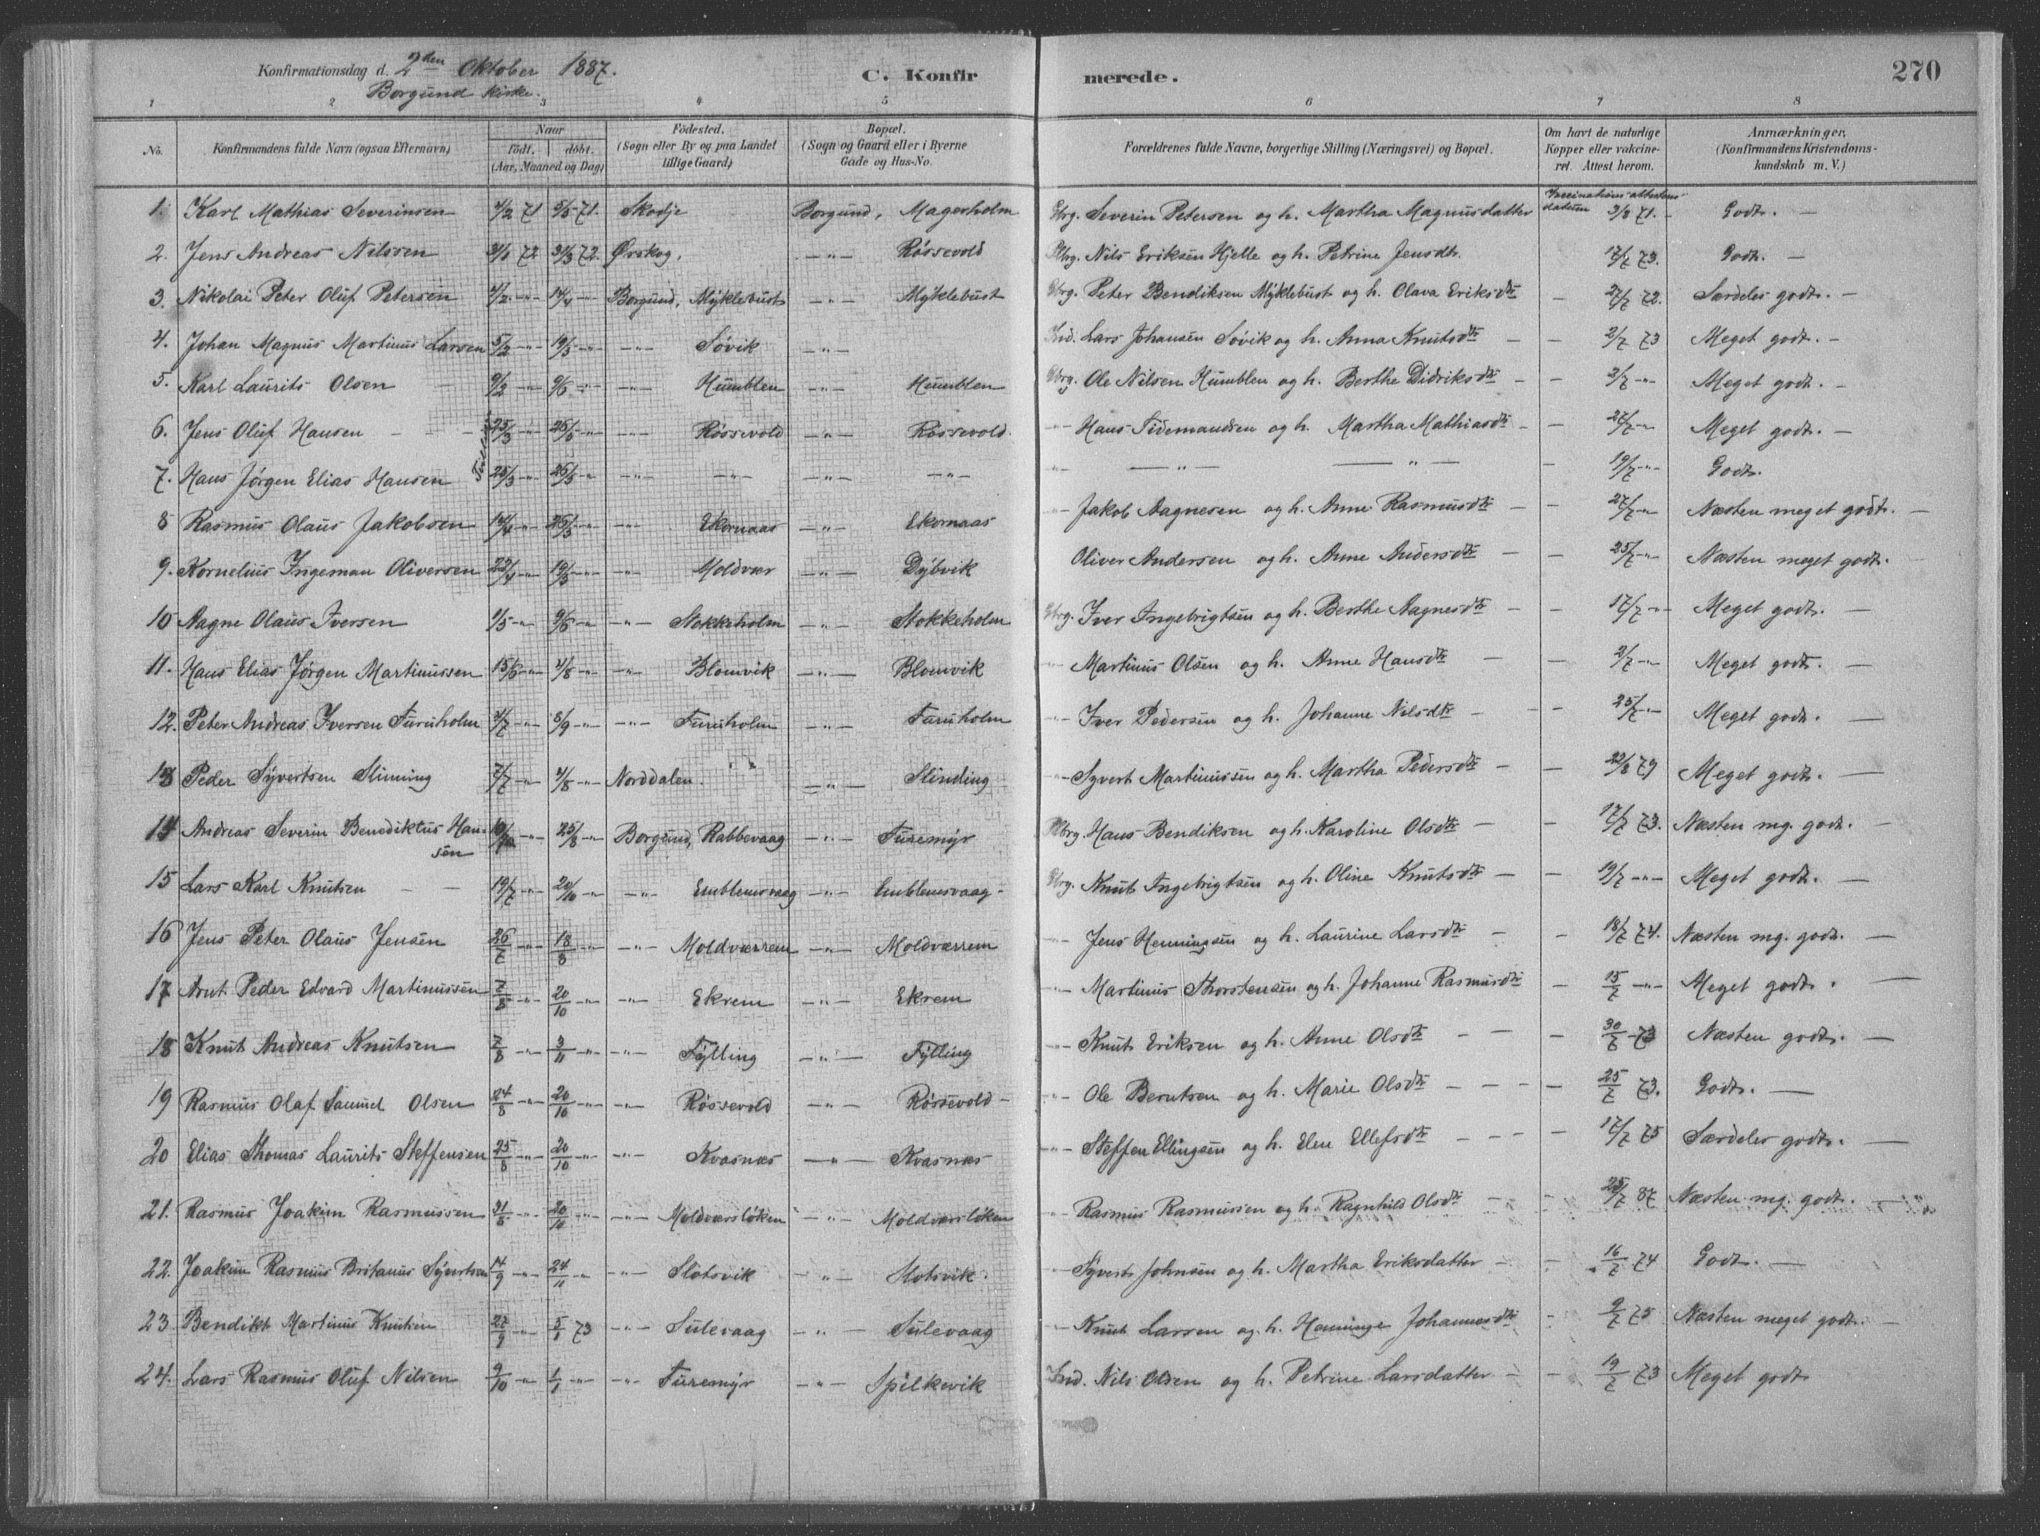 Konfirmationsdag d. 2den Oktober 1887. C. Konfirmerede. 270
Borgund Kirke.
1 2 3 4 5 6 7 8
No. Konfirmandens fulde Navn (ogsaa Efternavn) Naar født. døbt. (Aar, Maaned og Dag) Fødested. (Sogn eller By og paa Landet tillige Gaard) Bopæl. (Sogn og Gaard eller i Byerne Gade og Hus-No. Forældrenes fulde Navne, borgerlige Stilling (Næringsvei) og Bopæl. Om havt de naturlige Kopper eller vakcineret. Attest herom. Anmærkninger. (Konfirmandens Kristendomskundskab m. V.)
1. Karl Mathias Severinsen 4/2 71 9/5 71. Skodje Borgund, Magerholm Gbrg. Severin Petersen og h. Martha Magnusdatter Vaccinationsattestens datum 3/8 71. — Godt. —
2. Jens Andreas Nilssen 31/1 72 31/3 72. Ørskog. —"— Røssevold Pbrg. Nils Eriksen Hjelle og h. Petrine Jensdtr. 17/7 73. Godt. —
3. Nikolai Peter Oluf Petersen 4/2 —"— 14/4 —"— Borgund, Myklebust —"— Myklebust Gbrg. Peter Bendiksen Myklebust og h. Olava Eriksdtr — 27/7 72. Særdeles godt. —
4. Johan Magnus Martinus Larsen 5/2 —"— 19/5 —"— —"— Søvik —"— Ind. Lars Johansen Søvik og h. Anna Knutsdtr — — 2/7 73 Meget godt. —
5. Karl Laurits Olsen 9/2 —"— 9/6 —"— —"— Humblen —"— Humblen Gbrg. Ole Nilsen Humblen og h. Berthe Didriksdtr — — 2/7 —"— Meget godt. —
6. Jens Oluf Hansen — — Tvillinger 25/3 —"— 25/5 —"— —"— Røssevold —"— Røssevold. —"— Hans Tidemandsen og h. Martha Mathiasdtr — — 27/7 —"— Meget godt. —
7. Hans Jørgen Elias Hansen 25/3 —"— 25/5 —"— —"— —"— —"— —"— —"— —"— —"— — 19/7 —"— Godt.
8 Rasmus Olaus Jakobsen 14/4 —"— 26/5 —"— —"— Ekornaas —"— Ekornaas —"— Jakob Aagnesen og h. Anne Rasmusdtr — — 27/7 —"— Næsten meget godt. —
9. Kornelius Ingeman Oliversen 22/4 —"— 19/5 —"— —"— Moldvær —"— Dybvik Oliver Andersen og h. Anne Andersdtr — — 25/7 —"— Næsten meget godt.
10 Aagne Olaus Iversen 1/5 —"— 9/6 —"— —"— Stokkeholm —"— Stokkeholm Gbrg. Iver Ingebrigtsen og h. Berthe Aagnesdtr — — 17/7 —"— Meget godt. —
11. Hans Elias Jørgen Martinussen 15/6 —"— 4/8 —"— —"— Blomvik —"— Blomvik —"— Martinus Olsen og h. Anne Hansdtr — — 2/7 —"— Meget godt. —
12. Peter Andreas Iversen Furuholm 4/7 —"— 8/9 —"— —"— Furuholm —"— Furuholm —"— Iver Pedersen og h. Johanne Nilsdtr — — 25/7 —"— Meget godt. —
13 Peder Syvertsen Slinning 7/7 —"— 4/8 —"— Norddalen. —"— Slinding —"— Syvert Martinussen og h. Martha Pedersdtr — — 22/8 79 Meget godt. —
14 Andreas Severin Benediktus Hansen —"— 25/8 —"— Borgund, Rabbevaag —"— Furemyr Pbrg. Hans Bendiksen og h. Karoline Olsdtr — — 17/7 73. Næsten mg. godt. —
15 Lars Karl Knutsen — — 19/7 —"— 20/10 —"— —"— Emblemsvaag —"— Emblemsvaag Gbrg. Knut Ingebrigtsen og h. Oline Knutsdtr — — 19/7 —"— Meget godt. —
16 Jens Peter Olaus Jensen 26/7 —"— 18/8 —"— —"— Moldværrem —"— Moldværrem —"— Jens Henningsen og h. Laurine Larsdtr — — 18/7 74. Næsten mg. godt. —
17 Knut Peder Edvard Martinussen 7/8 —"— 20/10 —"— —"— Ekrem —"— Ekrem —"— Martinus Thorstensen og h. Johanne Rasmusdtr — 15/7 —"— Meget godt. —
18 Knut Andreas Knutsen 7/8 —"— 3/11 —"— —"— Fylling —"— Fylling —"— Knut Eriksen og h. Anne Olsdtr — — — 30/7 73 Næsten godt. —
19 Rasmus Olaf Samuel Olsen 24/8 —"— 20/10 —"— —"— Røssevold —"— Røssevold —"— Ole Berntsen og h. Marie Olsdtr — — — 25/7 73. Godt. —
20 Elias Thomas Laurits Steffensen 25/8 —"— 20/10 —"— —"— Kvasnæs —"— Kvasnæs —"— Steffen Ellingsen og h. Elen Ellefsdtr — — — 17/7 75 Særdeles godt. —
21. Rasmus Joakim Rasmussen 31/8 —"— 20/10 —"— —"— Moldværsløken —"— Moldværsløken —"— Rasmus Rasmussen og h. Ragnhild Olsdtr — — 25/7 87 Næsten mg. godt. —
22. Joakim Rasmus Britanus Syvertsen 14/9 —"— 24/11 —"— —"— Slotsvik —"— Slotsvik. —"— Syvert Johnsen og h. Martha Eriksdatter — — 16/7 74 Godt. —
23. Bendikt Martinus Knutsen 22/9 —"— 5/1 73 —"— Sulevaag —"— Sulevaag —"— Knut Larsen og h. Henninge Johannesdtr — 9/7 75 Næsten meget godt. —
24. Lars Rasmus Oluf Nilsen 9/10 —"— 1/1 —"— —"— Furemyr —"— Spilkevik Ind. Nils Olsen og h. Petrine Larsdatter — — 19/7 73 Meget godt